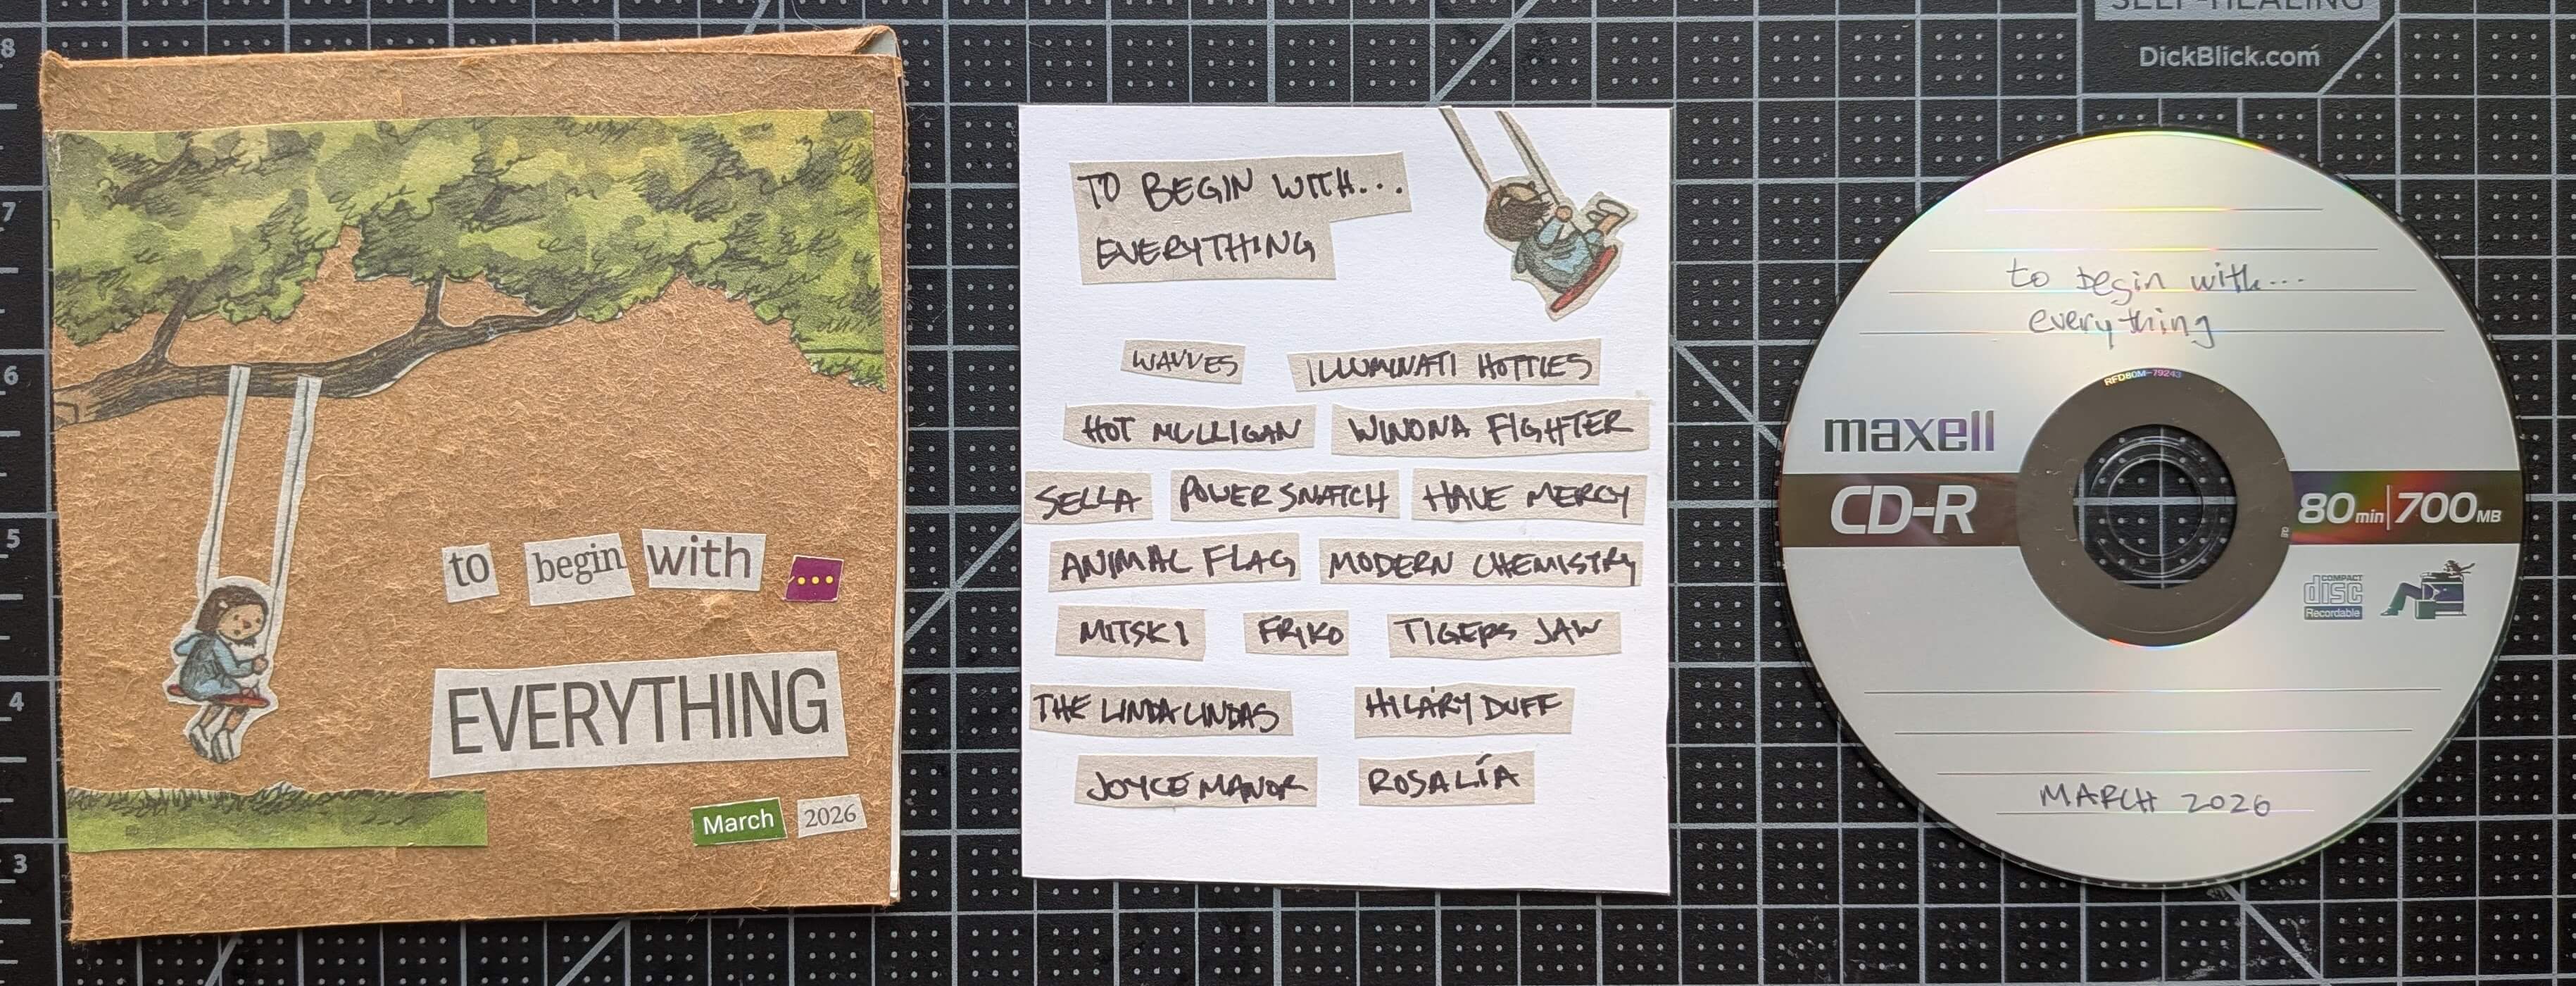 8
7
6
5
4
3
to begin with ...
EVERYTHING
March 2026
TO BEGIN WITH...
EVERYTHING
WAVVES ILLUMINATI HOTTIES
HOT MULLIGAN WINONA FIGHTER
SELLA POWER SNATCH HAVE MERCY
ANIMAL FLAG MODERN CHEMISTRY
MITSKI FRIKO TIGERS JAW
THE LINDA LINDAS HILARY DUFF
JOYCE MANOR ROSALÍA
SELF-HEALING
DickBlick.com
to begin with...
everything
RFD80M-79243
maxell
CD-R 80min|700MB
COMPACT
disc
Recordable
MARCH 2026